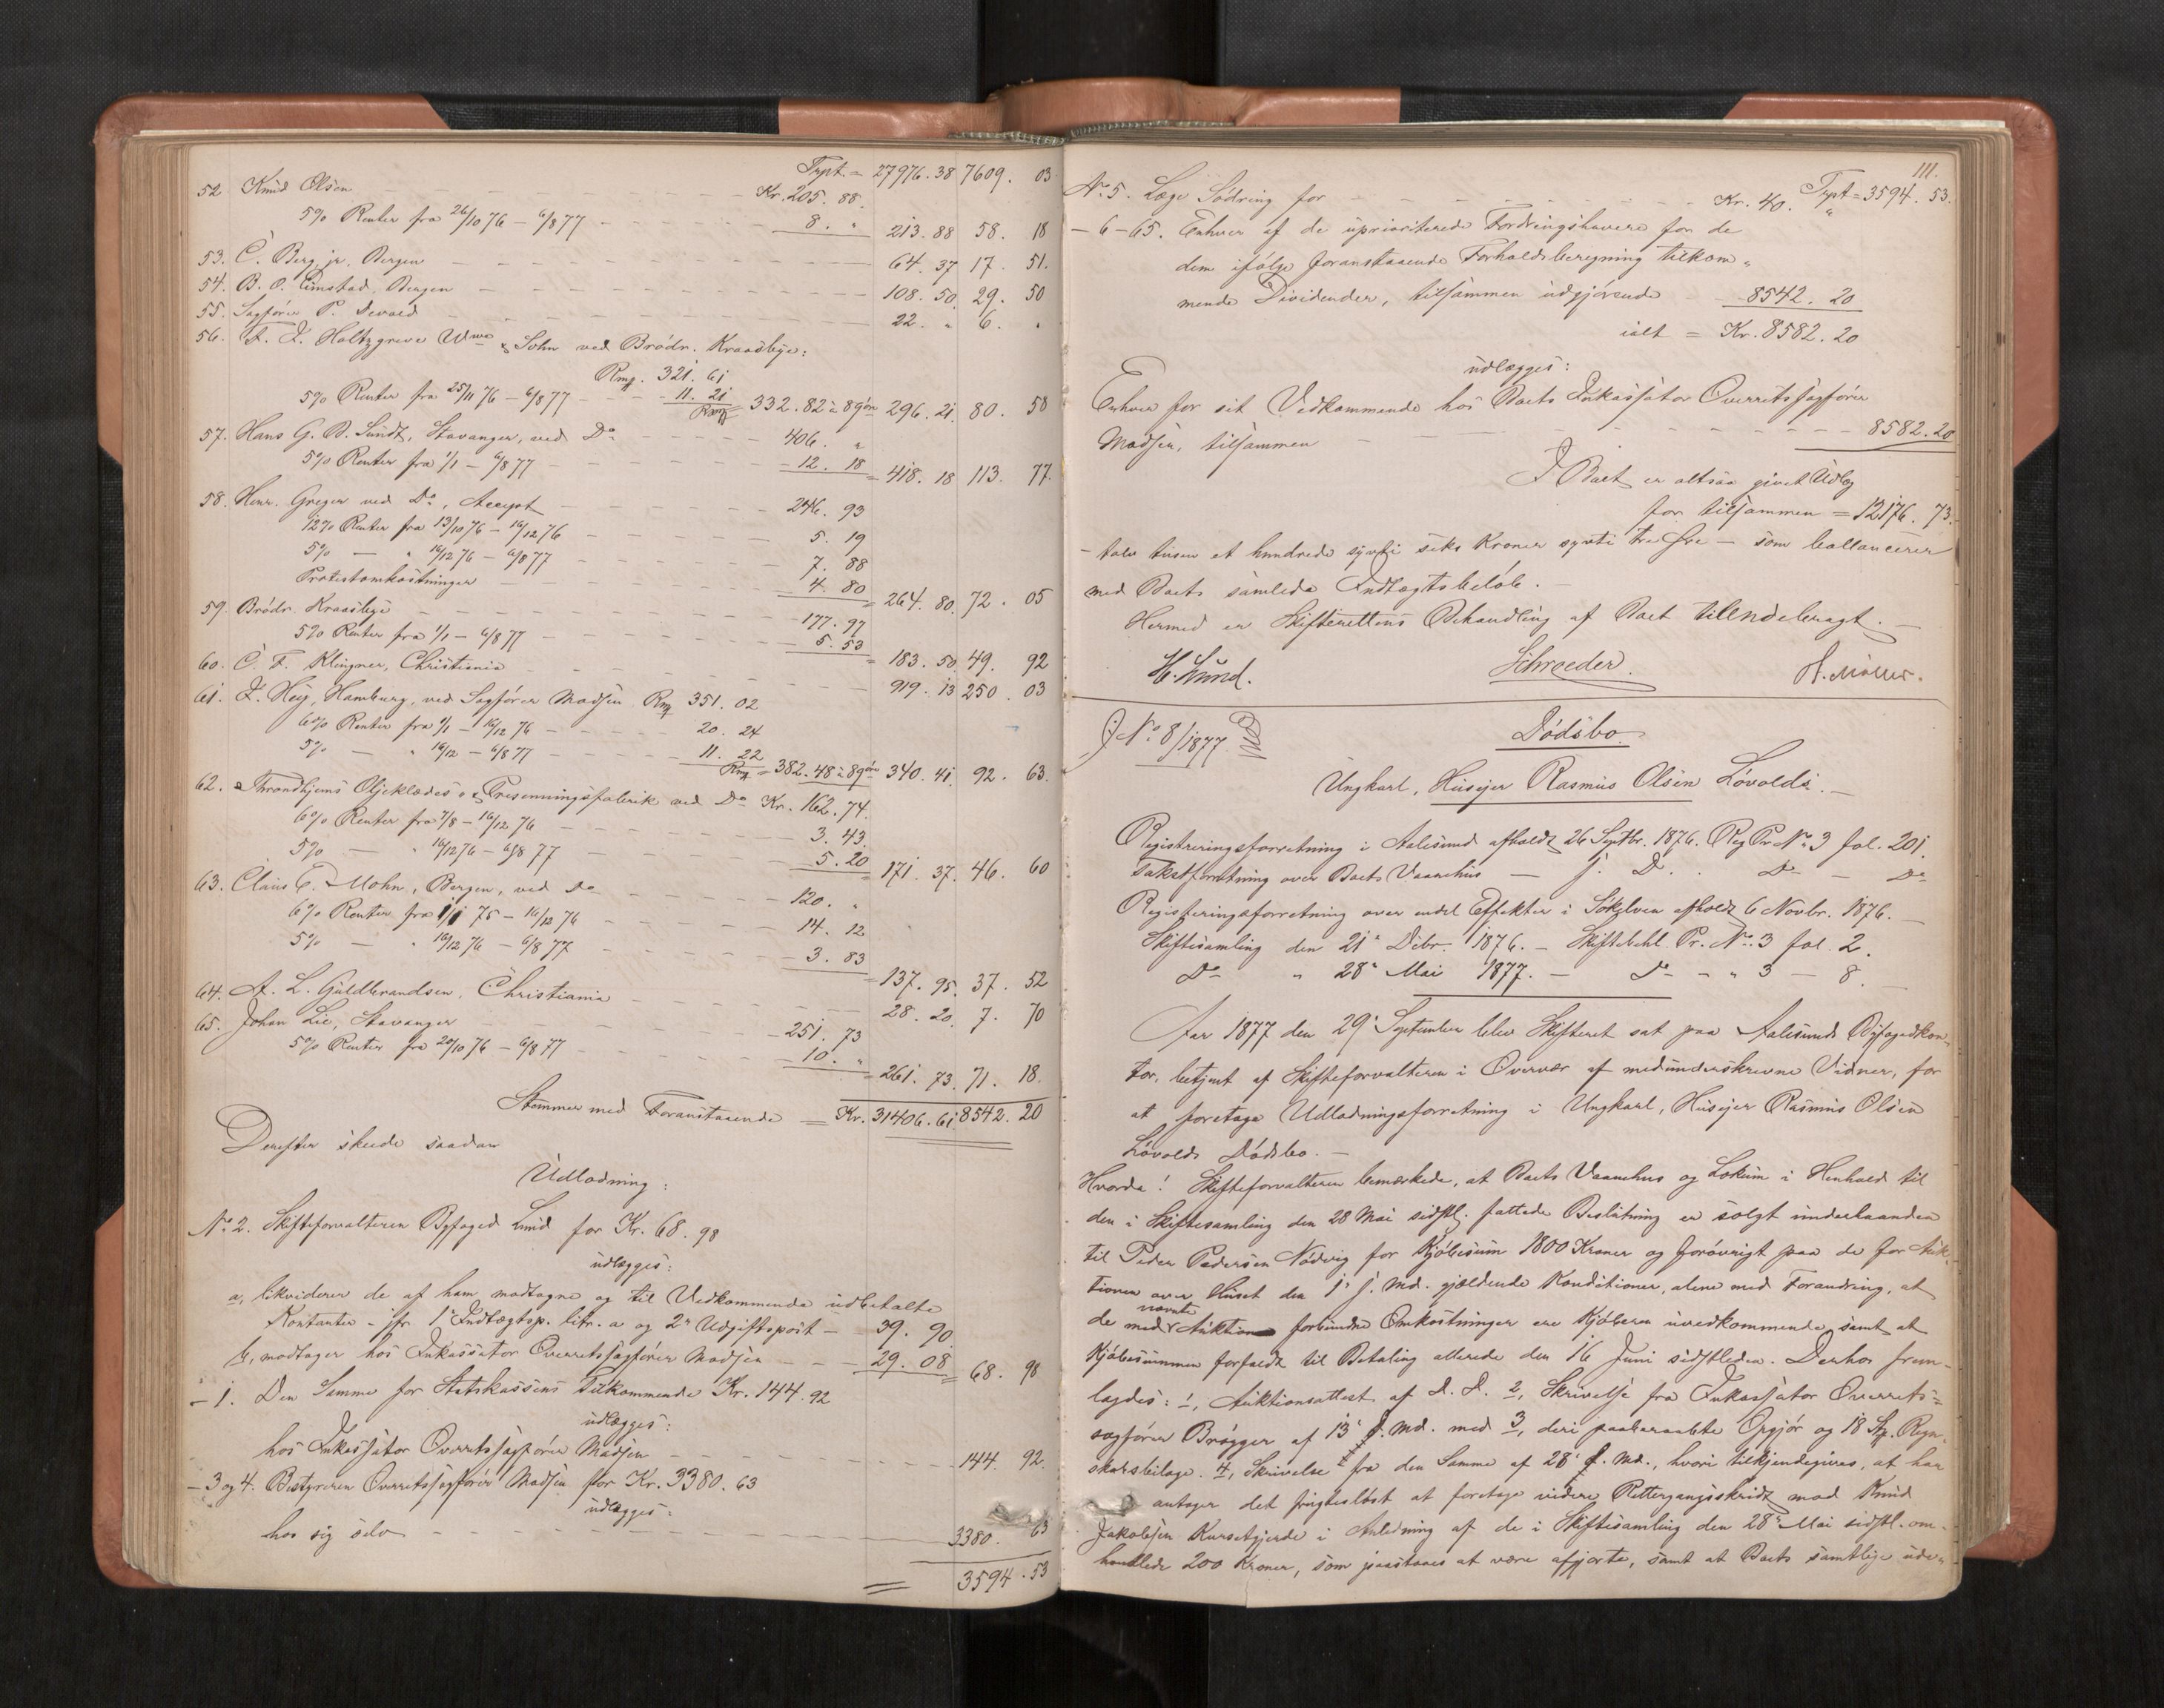 Trpt. = 27976.38 7609. 03
52 Knud Olsen Kr. 205. 88.
5% Renter fra 26/10 76 – 6/8 77 8. " 213. 88 58. 18
53. C. Berg jr. Bergen 64. 37 17. 51.
54. B. O. Bergen 108. 50 29. 50
55. Sagfører P. Devold 22. " 6. "
56. F. J. Holtzgreve Wwe & Sohn ved Brødr. Kraasbye:
Rmg. 321. 61
5% Renter fra 25/11 76 – 6/8 77 11. 21
Rmg = 332. 82 à 89 øre 296. 21 80. 58
57. Hans G. B. Sundt, Stavanger, ved Do 406. "
5% Renter fra 1/1 – 6/8 77 12. 18 = 418. 18 113. 77.
58. Henr. Greger ved Do, Accept 246. 93
12% Renter fra 13/10 76 – 16/12 76 5. 19
5% — " 16/12 76 – 6/8 77 7. 88
Protestomkostninger 4. 80 = 264. 80. 72. 05
59. Brødr. Kraasbye 177. 97
5% Renter fra 1/1 – 6/8 77 5. 53 = 183. 50 49. 92
60. C. F. Klingner, Christiania 919. 13 250. 03
61. J. Hey, Hamburg, ved Sagfører Madsen Rmg 351. 02
6% Renter fra 1/1 – 16/12 76 20. 24
5% — " 16/12 – 6/8 77 11. 22
Rmg = 382. 48 à 89 øre 340. 41 92. 63.
62. Throndhjems Oljeklædes & Presenningsfabrik ved Do Kr. 162. 74.
6% Renter fra 7/8 – 16/12 76 3. 43.
5% — " 16/12 76 – 6/8 77 5. 20 = 171. 37. 46. 60
63. Claus E. Mohn, Bergen, ved Do 120. "
6% Renter fra 1/1 75 – 16/12 76 14. 12
5% — " 16/12 76 – 6/8 77 3. 83 = 137. 95. 37. 52
64. A. L. Guldbrandsen, Christiania 28. 20. 7. 70
65. Johan Lie, Stavanger 251. 73
5% Renter fra 20/10 76 – 6/8 77 10. " = 261. 73. 71. 18.
Stemmer med Foranstaaende = Kr. 31406. 61 8542. 20
Derefter skede saadan
Udlodning:
No 2. Skifteforvalteren Byfoged Lund for Kr. 68. 98
udlægges:
a, likviderer de af ham modtagne og til Vedkommende udbetalte
Kontanter – jfr. 1e Indtægtsp. litr. a og 2n Udgiftspost – 39. 90
b, modtager hos Inkassator Overretssagfører Madsen 29. 08 = 68. 98
– 1. Den Samme for Statskassens Tilkommende Kr. 144. 92
udlægges:
hos Inkassator Overretssagfører Madsen 144. 92.
– 3 og 4. Bestyreren Overretssagfører Madsen for Kr. 3380. 63
udlægges:
hos sig selv 3380. 63
= 3594. 53
111.
Trpt = 3594. 53.
No 5. Læge Sødring for Kr. 40. "
– 6 – 65. Enhver af de uprioriterede Fordringshavere for de
dem ifølge foranstaaende Forholdsberegning tilkom-
mende Dividender, tilsammen udgjørende 8542. 20
ialt = Kr. 8582. 20
udlægges:
Enhver for sit Vedkommende hos Boets Inkassator Overretssagfører
Madsen, tilsammen 8582. 20
I Boet er altsaa givet Udlæg
for tilsammen = 12176. 73.
– tolv tusen et hundrede sytti seks Kroner sytti tre Øre – som ballancerer
med Boets samlede Indtægtsbeløb. –
Hermed er Skifterettens Behandling af Boet tilendebragt. –
H. Lund. Schroeder. H. Møller.
J No 8/1877
Dødsbo.
Ungkarl, Huseier Rasmus Olsen Løvolds. –
Registreringsforretning i Aalesund afholdt 26 Septbr. 1876. Reg Pr No 3 fol. 201.
Taxtforretning over Boets Vaanehus — s. D. Do – Do
Registreringsforretning over endel Effekter i Søkelven afholdt 6 Novbr. 1876. –
Skiftesamling den 21e Debr. 1876. – Skiftebehl. Pr. No 3 fol. 2.
Do " 28e Mai 1877. – Do – " 3 – 8. –
Aar 1877 den 29e September blev Skifteret sat paa Aalesunds Byfogedkon-
tor, betjent af Skifteforvalteren i Overvær af medunderskrevne Vidner, for
at foretage Udlodningsforretning i Ungkarl, Huseier Rasmus Olsen
Løvolds Dødsbo. –
Hvorda! Skifteforvalteren bemærkede, at Boets Vaanehus og Lokum i Henhold til
den i Skiftesamling den 28 Mai sidstl. fattede Beslutning er solgt underhaanden
til Peder Pedersen Nødvig for Kjøbesum 1800 Kroner og forøvrigt paa de for Auk-
tionen over Huset den 1e s. Md. gjældende Konditioner, alene med Forandring, at
de med nævnte Auktion forbundne Omkostninger ere Kjøberen uvedkommende, samt at
Kjøbesummen forfaldt til Betaling allerede den 16 Juni sidstleden. Derhos frem-
lagdes: 1, Auktionsattest af D. D. 2, Skrivelse fra Inkassator Overrets-
sagfører Brøgger af 13e f. Md. med 3, deri paaberaabte Opgjør og 18 St. Regn-
skabsbilage. 4, Skrivelse fra den Samme af 28e f. Md., hvori tilkjendegives, at han
antager det frugtesløst at foretage videre Rettergangsskridt mod Knud
Jakobsen Kursetgjerde i Anledning af de i Skiftesamling den 28e Mai sidstl. om-
handlede 200 Kroner, som paastaaes at være afgjorte, samt at Boets samtlige ude-